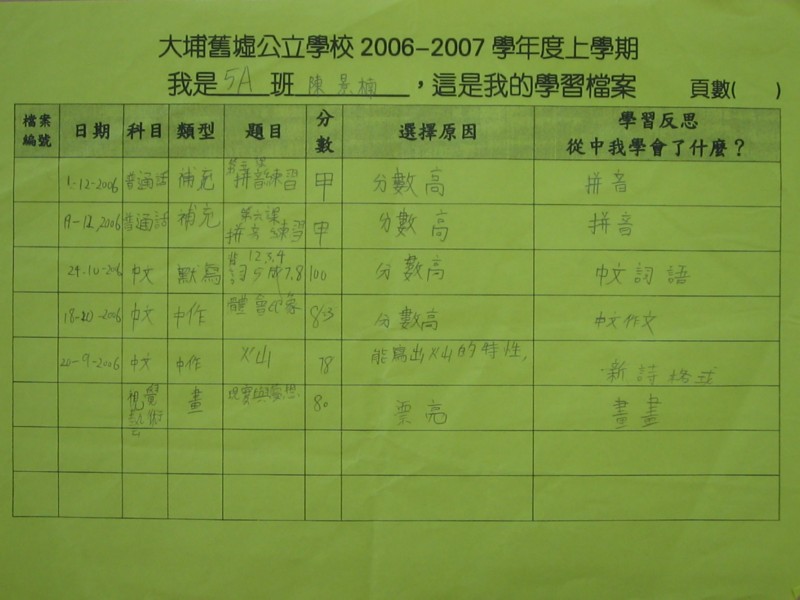 大埔舊墟公立學校 2006–2007 學年度上學期
我是 5A 班 陳 楠 ，這是我的學習檔案 頁數( )
檔案編號 日期 科目 類型 題目 分數 選擇原因 學習反思 從中我學會了什麼？
1-12-2006 普通話 補充 拼音練習 甲 分數高 拼音
普通話 補充 第六課 拼音練習 甲 分數高 拼音
24-10-2006 中文 默寫 7.8 100 分數高 中文詞語
中文 中作 體會 分數高 中文作文
20-9-2006 中文 中作 火山 78 能寫出火山的特性, 新詩格式
視覺藝術 畫 現實與夢想 80 漂亮 畫畫